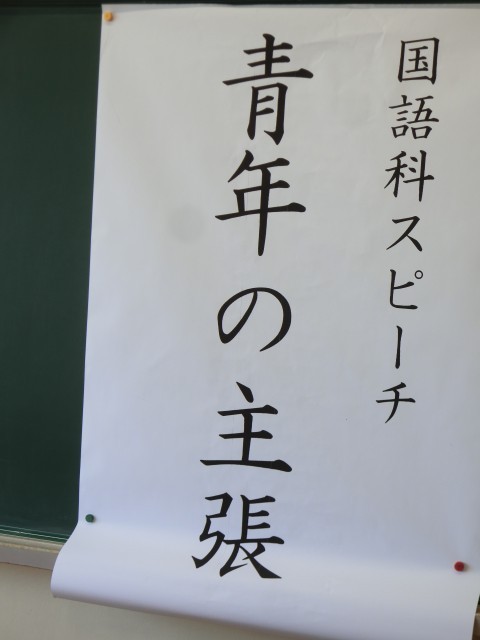 国語科スピーチ
青年の主張